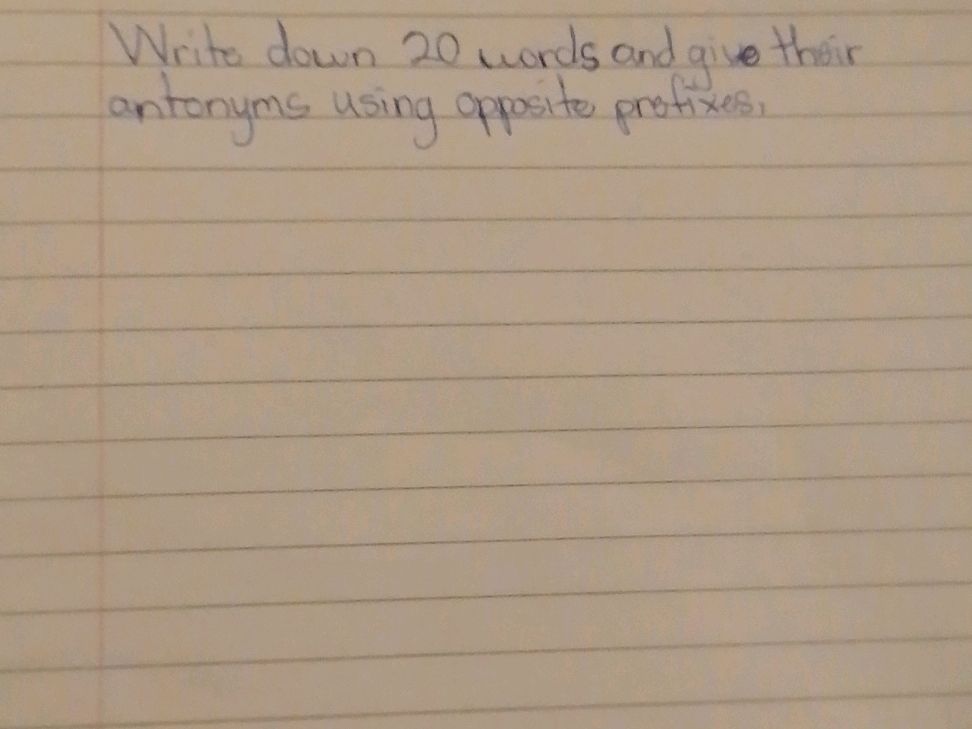 Write down 20 words and give their
antonyms using opposite prefixes.